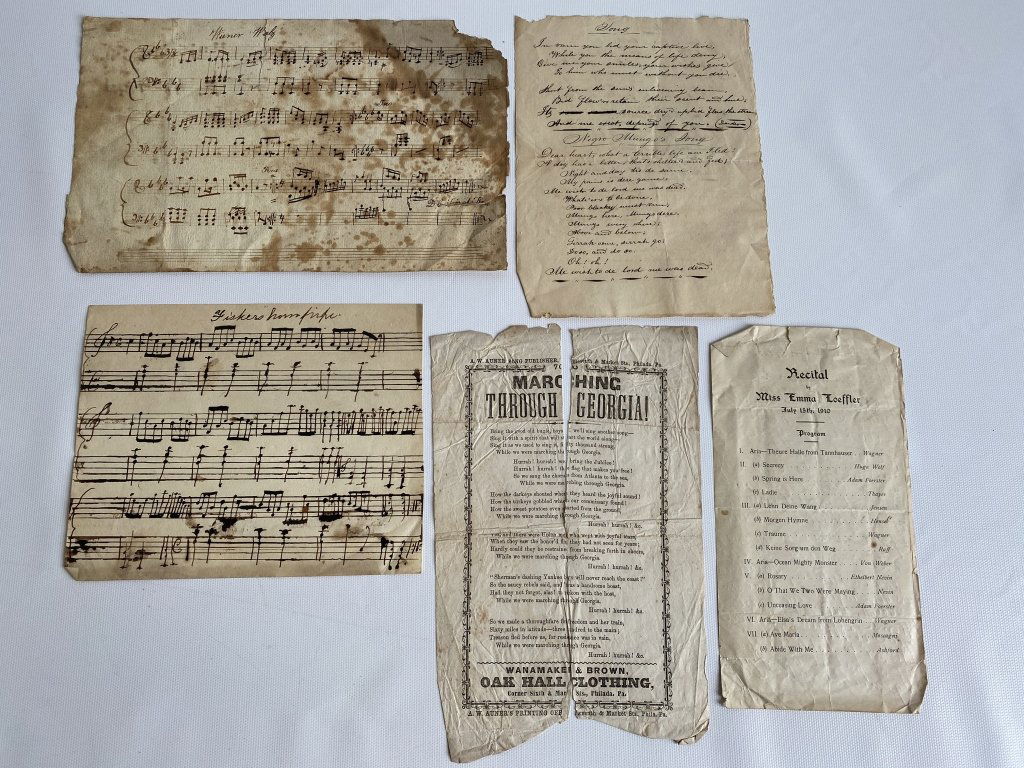 Wiener Walz
Song
In vain you bid your captive live,
While you the means of life deny,
Give me your smiles, your wishes give
To him who must without you die.
Shut from the sun's enlivening beam,
Bid flowers retain their scent and hue,
Its source dry'd up bid flow the stream
And me exist, depriv'd of you.
Negro Mungo's Song
Dear heart, what a terrible life am I led!
A dog has a better, that's shelter'd and fed;
Night and day 'tis de same,
My pain is dere game,
Me wish to de lord me was dead.
Whate'ers to be done,
Poor blacky must run,
Mungo here, Mungo dere,
Mungo every where;
Above and below,
Sirrah come, sirrah go;
Do so, and do so.
Oh! oh!
Me wish to de lord me was dead.
Fiskers hornpipe
A. W. AUNER SONG PUBLISHER, & Market Sts., Philada. Pa.
MARCHING
THROUGH GEORGIA!
Bring the good old bugle, boys we'll sing another song—
Sing it with a spirit that will start the world along—
Sing it as we used to sing it, fifty thousand strong,
While we were marching through Georgia.
Hurrah! hurrah! we bring the Jubilee!
Hurrah! hurrah! the flag that makes you free!
So we sang the chorus from Atlanta to the sea,
While we were marching through Georgia.
How the darkeys shouted when they heard the joyful sound!
How the turkeys gobbled which our commissary found!
How the sweet potatoes even started from the ground,
While we were marching through Georgia.
Hurrah! hurrah! &c.
Yes, and there were Union men who wept with joyful tears,
When they saw the honor'd flag they had not seen for years;
Hardly could they be restrained from breaking forth in cheers,
While we were marching through Georgia.
Hurrah! hurrah! &c.
"Sherman's dashing Yankee boys will never reach the coast!"
So the saucy rebels said, and 'twas a handsome boast,
Had they not forgot, alas! to reckon with the host,
While we were marching through Georgia.
Hurrah! hurrah! &c.
So we made a thoroughfare for freedom and her train,
Sixty miles in latitude—three hundred to the main;
Treason fled before us, for resistance was in vain,
While we were marching through Georgia.
Hurrah! hurrah! &c.
WANAMAKER & BROWN,
OAK HALL CLOTHING,
Corner Sixth & Market Sts., Philada. Pa.
A. W. AUNER'S PRINTING OFFICE & Market Sts., Phila. Pa.
Recital
by
Miss Emma Loeffler
July 15th, 1910
Program
I. Aria—Theure Halle from Tannhauser . . Wagner
II. (a) Secrecy . . . . Hugo Wolf
(b) Spring is Here . . . . Adam Foerster
(c) Ladie . . . . Thayer
III. (a) Lehn Deine Wang . . . . Jensen
(b) Morgen Hymne . . . . Hensel
(c) Traume . . . . Wagner
(d) Keine Sorg um den Weg . . . . Raff
IV. Aria—Ocean Mighty Monster . . . Von Weber
V. (a) Rosary . . . . Ethelbert Nevin
(b) O That We Two Were Maying . . . Nevin
(c) Unceasing Love . . . . Adam Foerster
VI. Aria—Elsa's Dream from Lohengrin . . Wagner
VII. (a) Ave Maria . . . . Mascagni
(b) Abide With Me . . . . Ashford